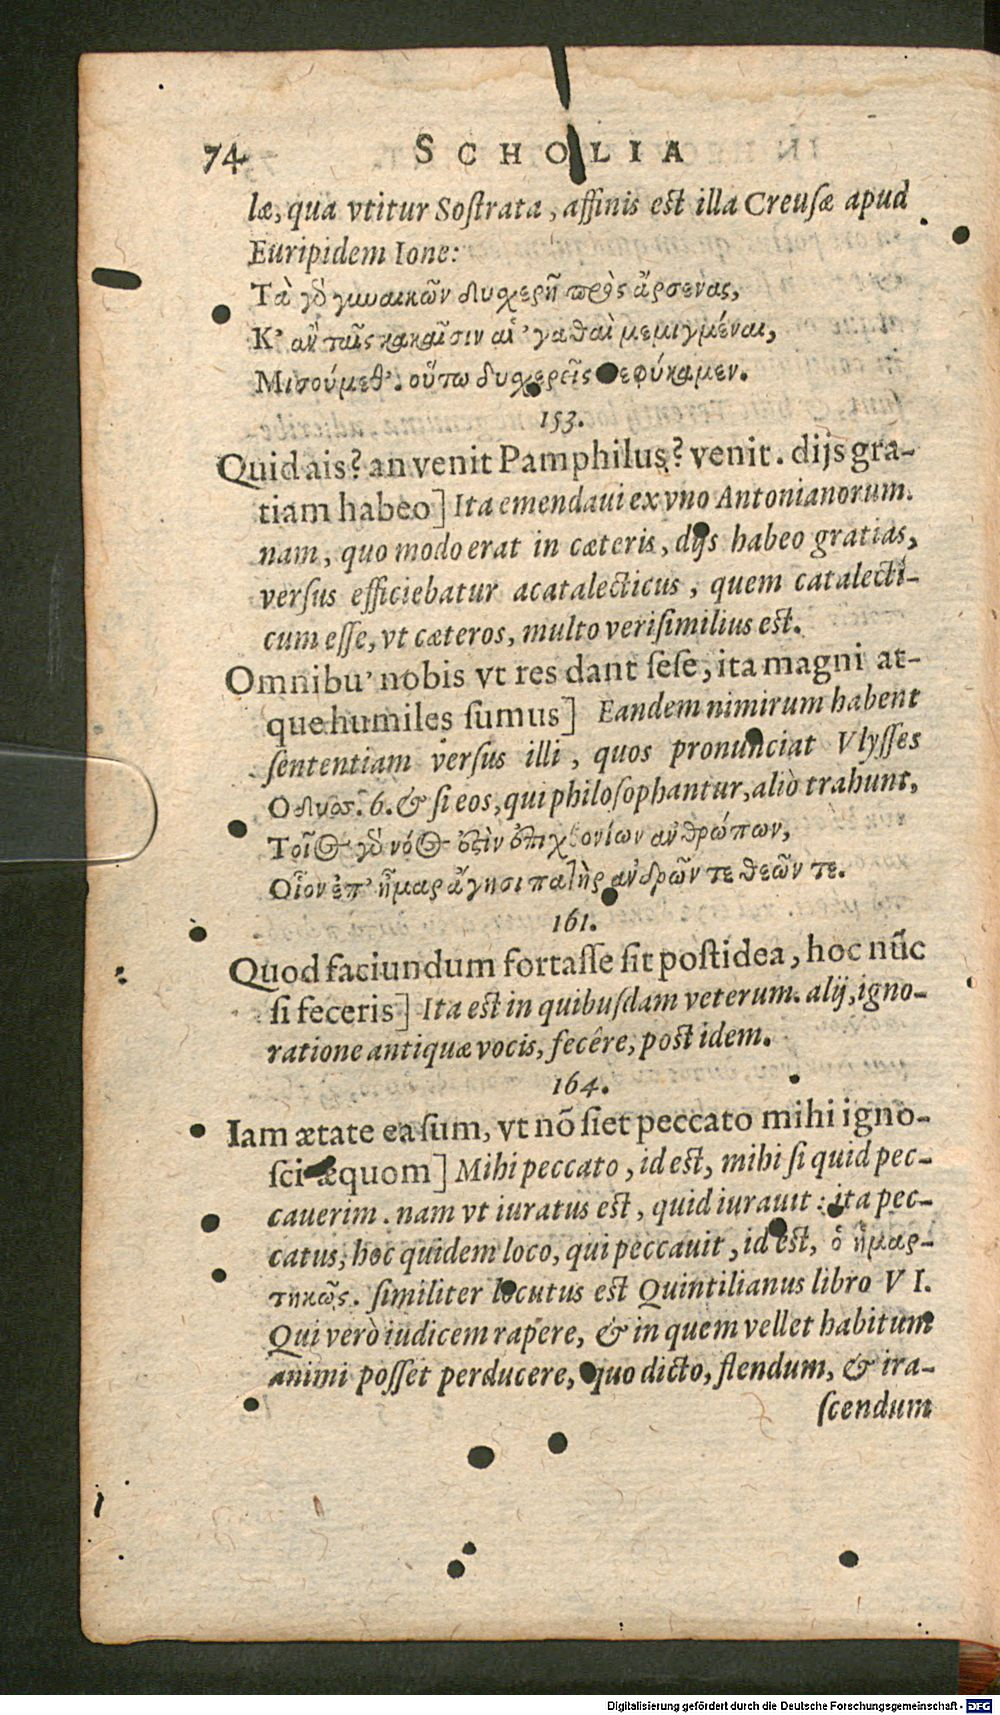 74 SCHOLIA
læ, qua vtitur Sostrata, affinis est illa Creusæ apud
Euripidem Ione:
Τὰ γὰρ γυναικῶν δυσχερῆ πρὸς ἄρσενάς,
Κ' αὖ ταῖς κακαῖσιν αἱ 'γαθαὶ μεμιγμέναι,
Μισούμεθ'. οὕτω δυσχερεῖς πεφύκαμεν.
153.
Quid ais? an venit Pamphilus? venit. dijs gra-
tiam habeo] Ita emendaui ex vno Antonianorum.
nam, quo modo erat in cæteris, dijs habeo gratias,
versus efficiebatur acatalecticus, quem catalecti-
cum esse, vt cæteros, multo verisimilius est.
Omnibu' nobis vt res dant sese, ita magni at-
que humiles sumus] Eandem nimirum habent
sententiam versus illi, quos pronunciat Vlysses
Οδυσ. 6. & si eos, qui philosophantur, aliò trahunt,
Τοῖος γὰρ νόος ἐστὶν ἐπιχθονίων ἀνθρώπων,
Οἷον ἐπ' ἦμαρ ἄγησι πατὴρ ἀνδρῶν τε θεῶν τε.
161.
Quod faciundum fortasse sit postidea, hoc nũc
si feceris] Ita est in quibusdam veterum. alij, igno-
ratione antiquæ vocis, fecêre, post idem.
164.
Iam ætate ea sum, vt nõ siet peccato mihi igno-
sci æquom] Mihi peccato, id est, mihi si quid pec-
cauerim. nam vt iuratus est, quid iurauit: ita pec-
catus, hoc quidem loco, qui peccauit, id est, ὁ ἡμαρ-
τηκῶς. similiter locutus est Quintilianus libro VI.
Qui verò iudicem rapere, & in quem vellet habitum
animi posset perducere, quo dicto, flendum, & ira-
scendum
Digitalisierung gefördert durch die Deutsche Forschungsgemeinschaft - DFG